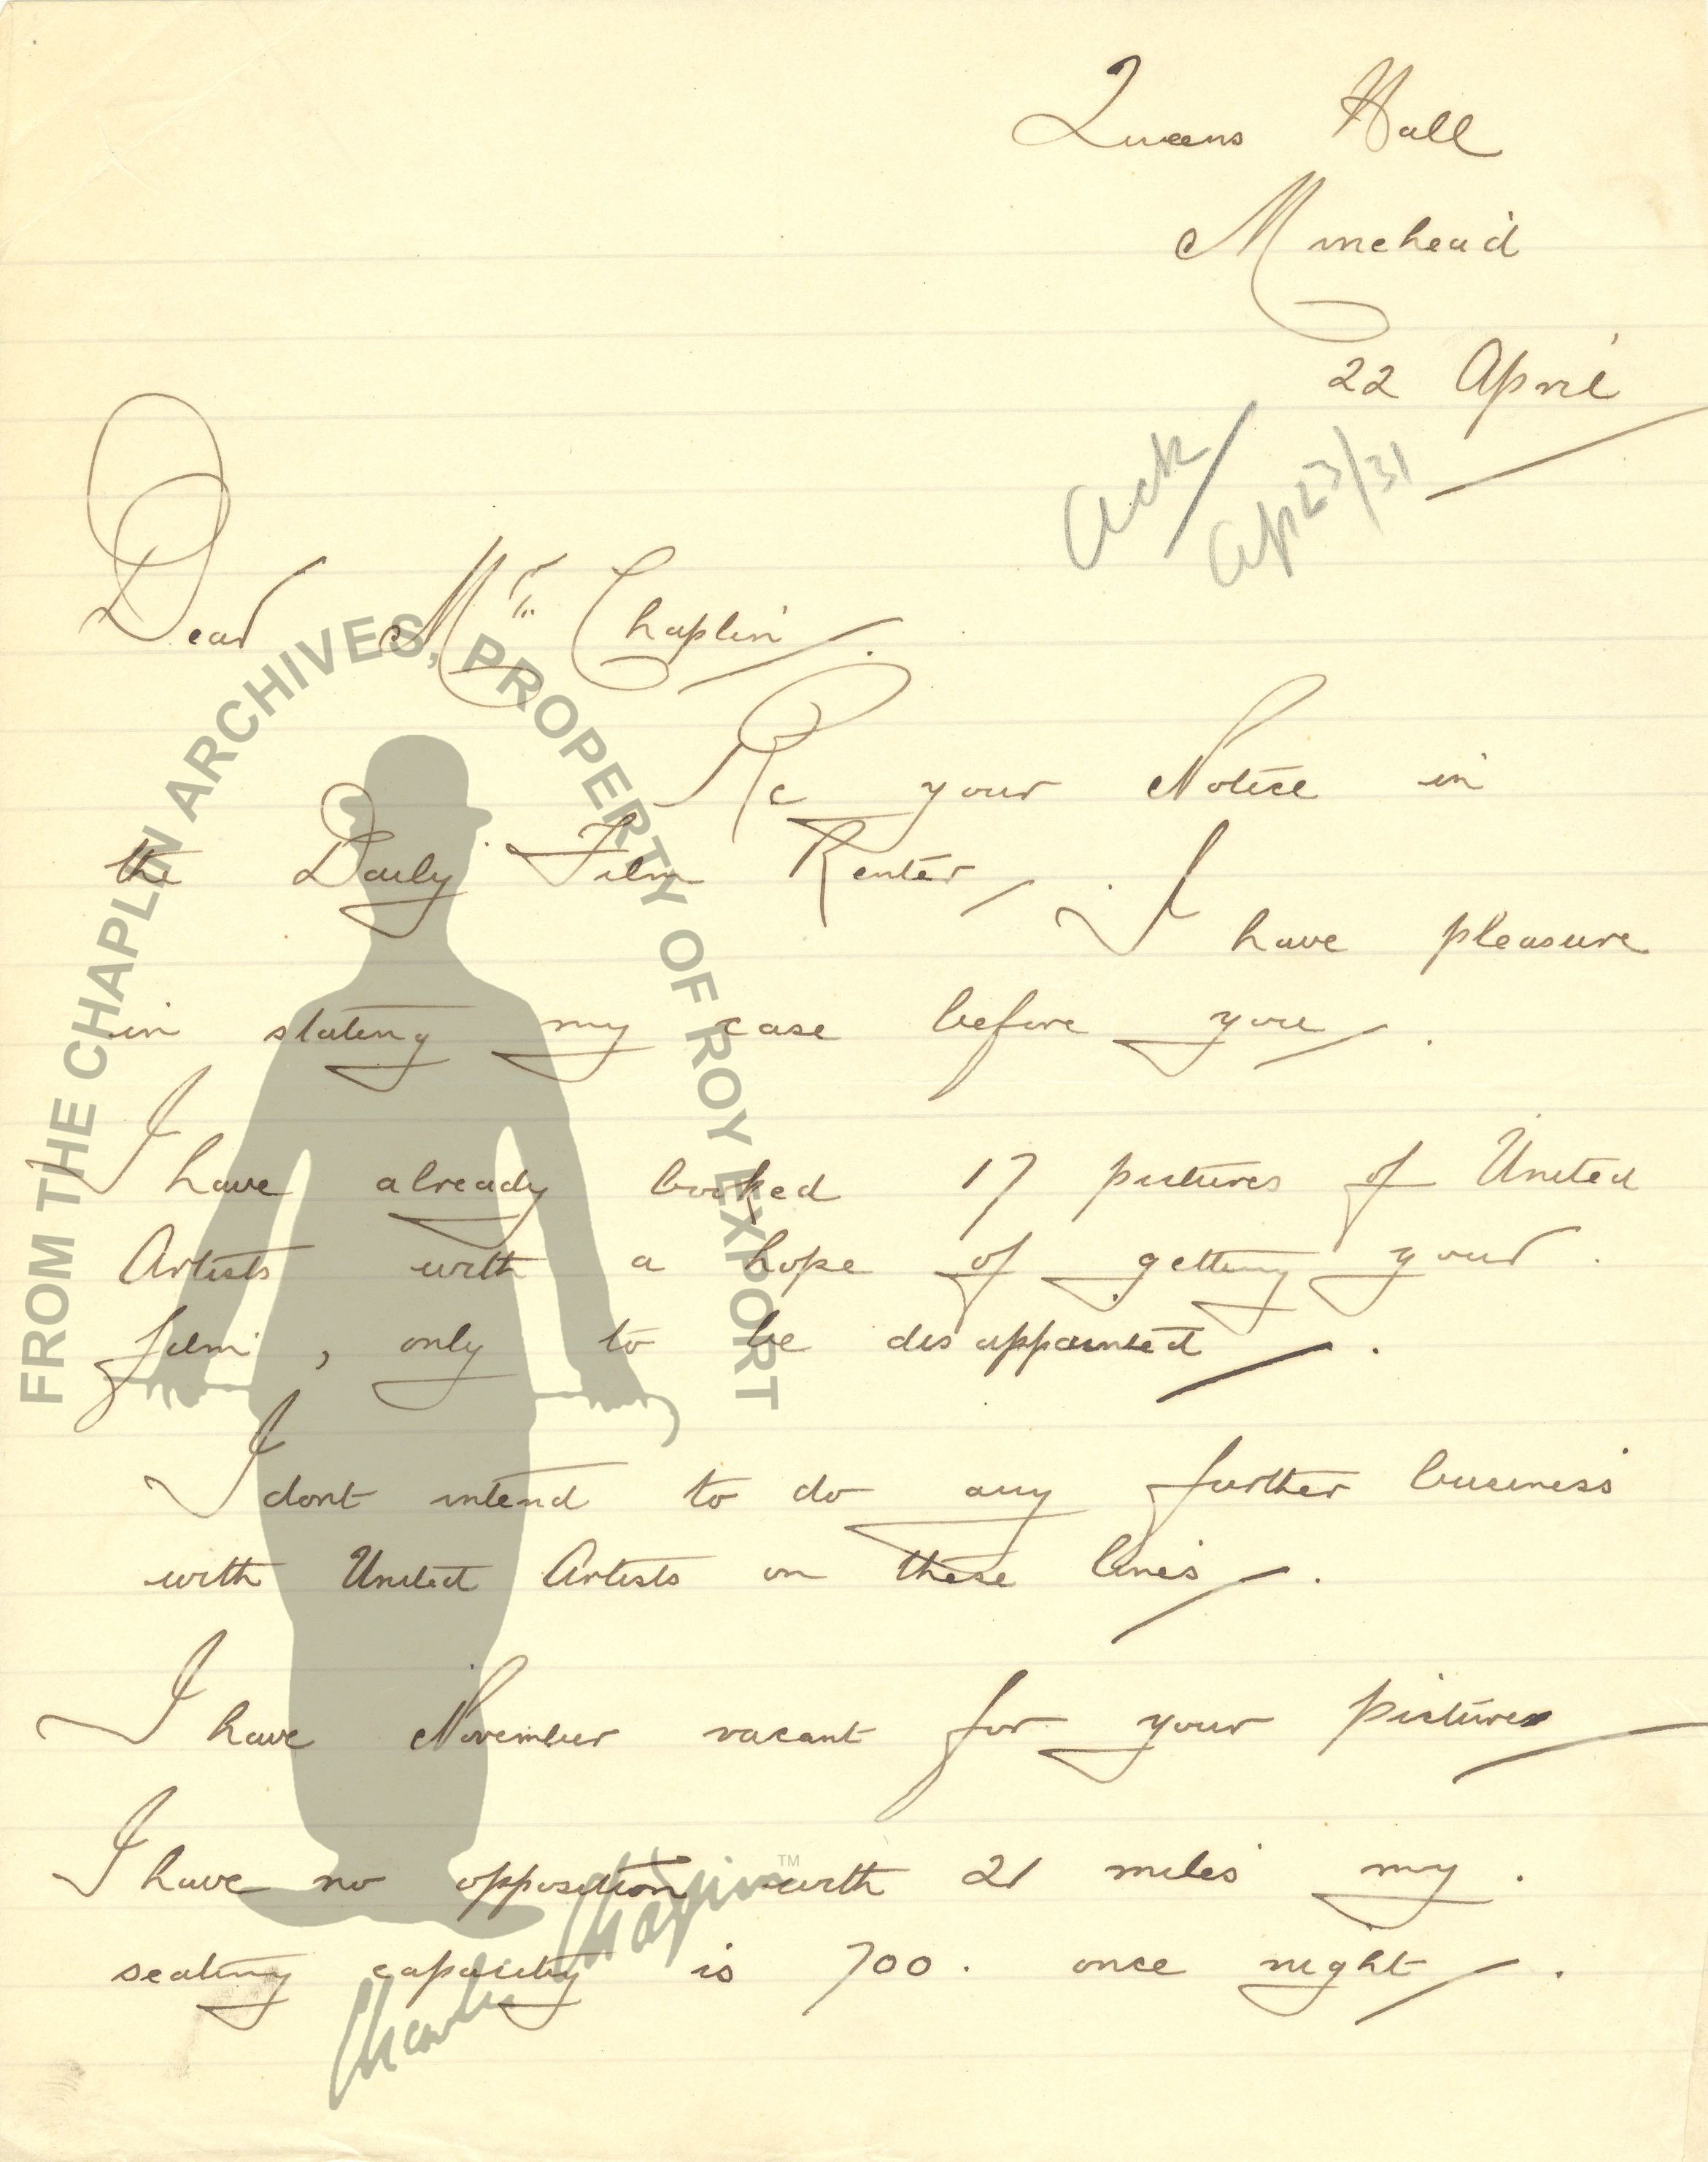 Queens Hall
Minehead
22 April
Ack/
Ap 23/31
Dear Mr Chaplin.
Re your Notice in
the Daily Film Renter,
I have pleasure
in stating my case before you.
I have already booked 17 pictures of United
Artists with a hope of getting your
film, only to be disappointed.
I dont intend to do any further business
with United Artists on these lines.
I have November vacant for your pictures
I have no opposition with 21 miles my
seating capacity is 700. once night.
FROM THE CHAPLIN ARCHIVES, PROPERTY OF ROY EXPORT
Charlie Chaplin™